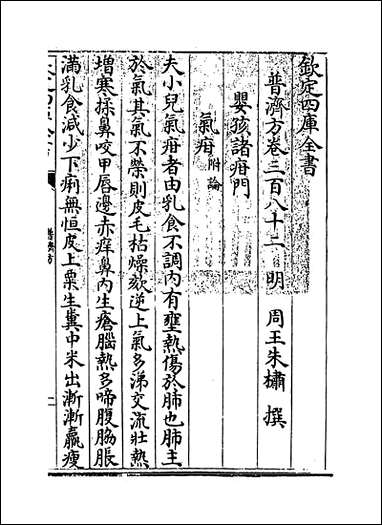 欽定四庫全書
普濟方卷三百八十二　明　周王朱橚　撰
嬰孩諸疳門
氣疳附論
夫小兒氣疳者由乳食不調內有壅熱傷於肺也肺主
於氣其氣不榮則皮毛枯燥欬逆上氣多涕交流壯熱
增寒揉鼻咬甲唇邊赤痒鼻內生瘡腦熱多啼腹脇脹
滿乳食減少下痢無恒皮上粟生糞中米出漸漸羸瘦
普濟方